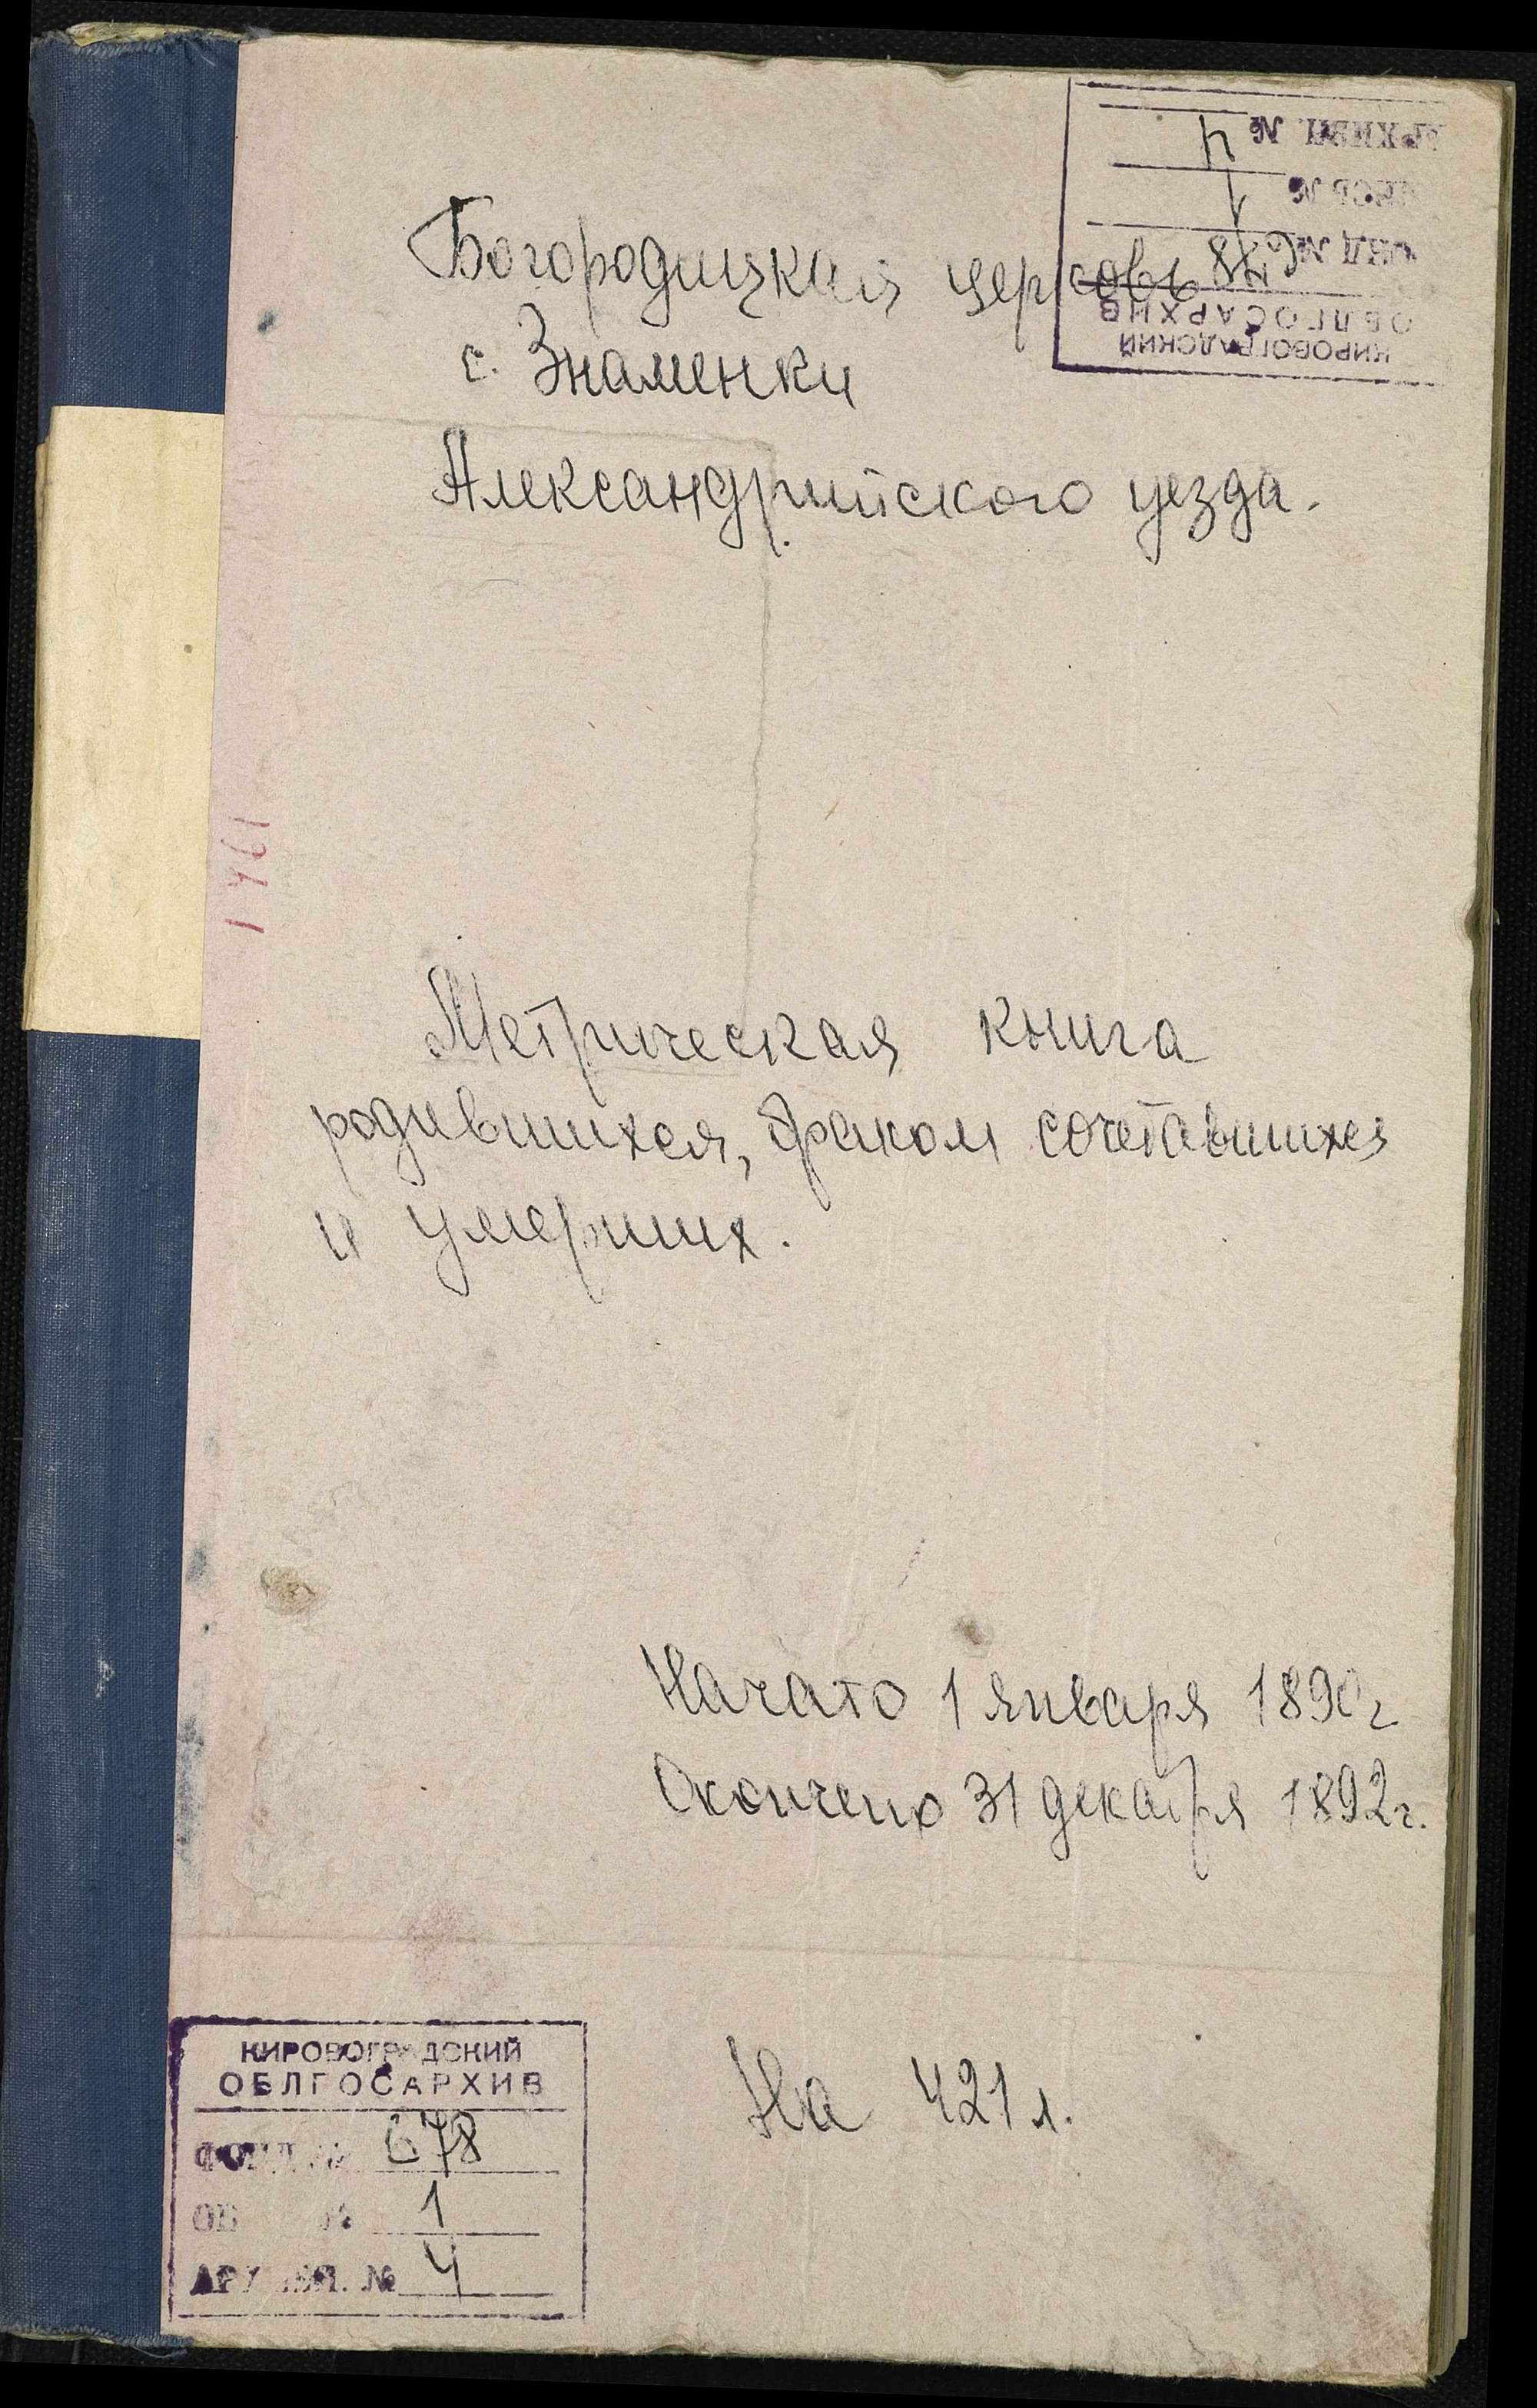 Богородицкая церковь
с. Знаменки
Александрийского уезда.
КИРОВОГРАДСКИЙ
ОБЛГОСАРХИВ
ФОНД № 678
ОПИСЬ № 1
АРХИВН. № 4
1961
Метрическая книга
родившихся, браком сочетавшихся
и умерших.
Начато 1 января 1890 г
Окончено 31 декабря 1892 г.
На 421 л.
КИРОВОГРАДСКИЙ
ОБЛГОСАРХИВ
ФОНД № 678
ОП № 1
АРХИВН. № 4